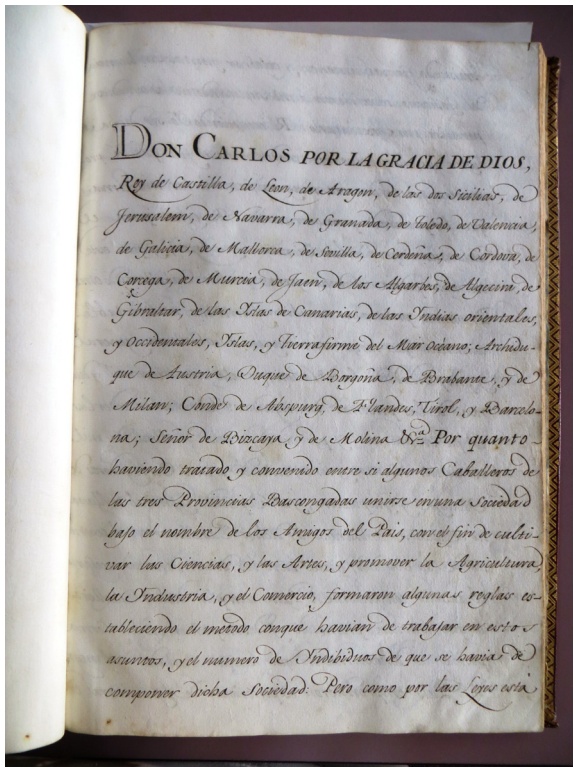 DON CARLOS POR LA GRACIA DE DIOS,
Rey de Castilla, de Leon, de Aragon, de las dos Sicilias, de
Jerusalem, de Navarra, de Granada, de Toledo, de Valencia,
de Galicia, de Mallorca, de Sevilla, de Cerdeña, de Córdova, de
Corcega, de Murcia, de Jaen, de los Algarbes, de Algecira, de
Gibraltar, de las Islas de Canarias, de las Indias orientales,
y Occidentales, Islas, y Tierrafirme del Mar Océano; Archidu-
que de Austria, Duque de Borgoña, de Brabante, y de
Milan; Conde de Abspurg, de Flandes, Tirol, y Barcelo-
na; Señor de Bizcaya y de Molina &ª Por quanto
haviendo tratado y convenido entre si algunos Caballeros de
las tres Provincias Bascongadas unirse en una Sociedad
bajo el nombre de los Amigos del Pais, con el fin de culti-
var las Ciencias, y las Artes, y promover la Agricultura,
la Industria, y el Comercio, formaron algunas reglas es-
tableciendo el metodo conque havian de trabajar en estos
asuntos, y el numero de Indibiduos de que se havia de
componer dicha Sociedad: Pero como por las Leyes está